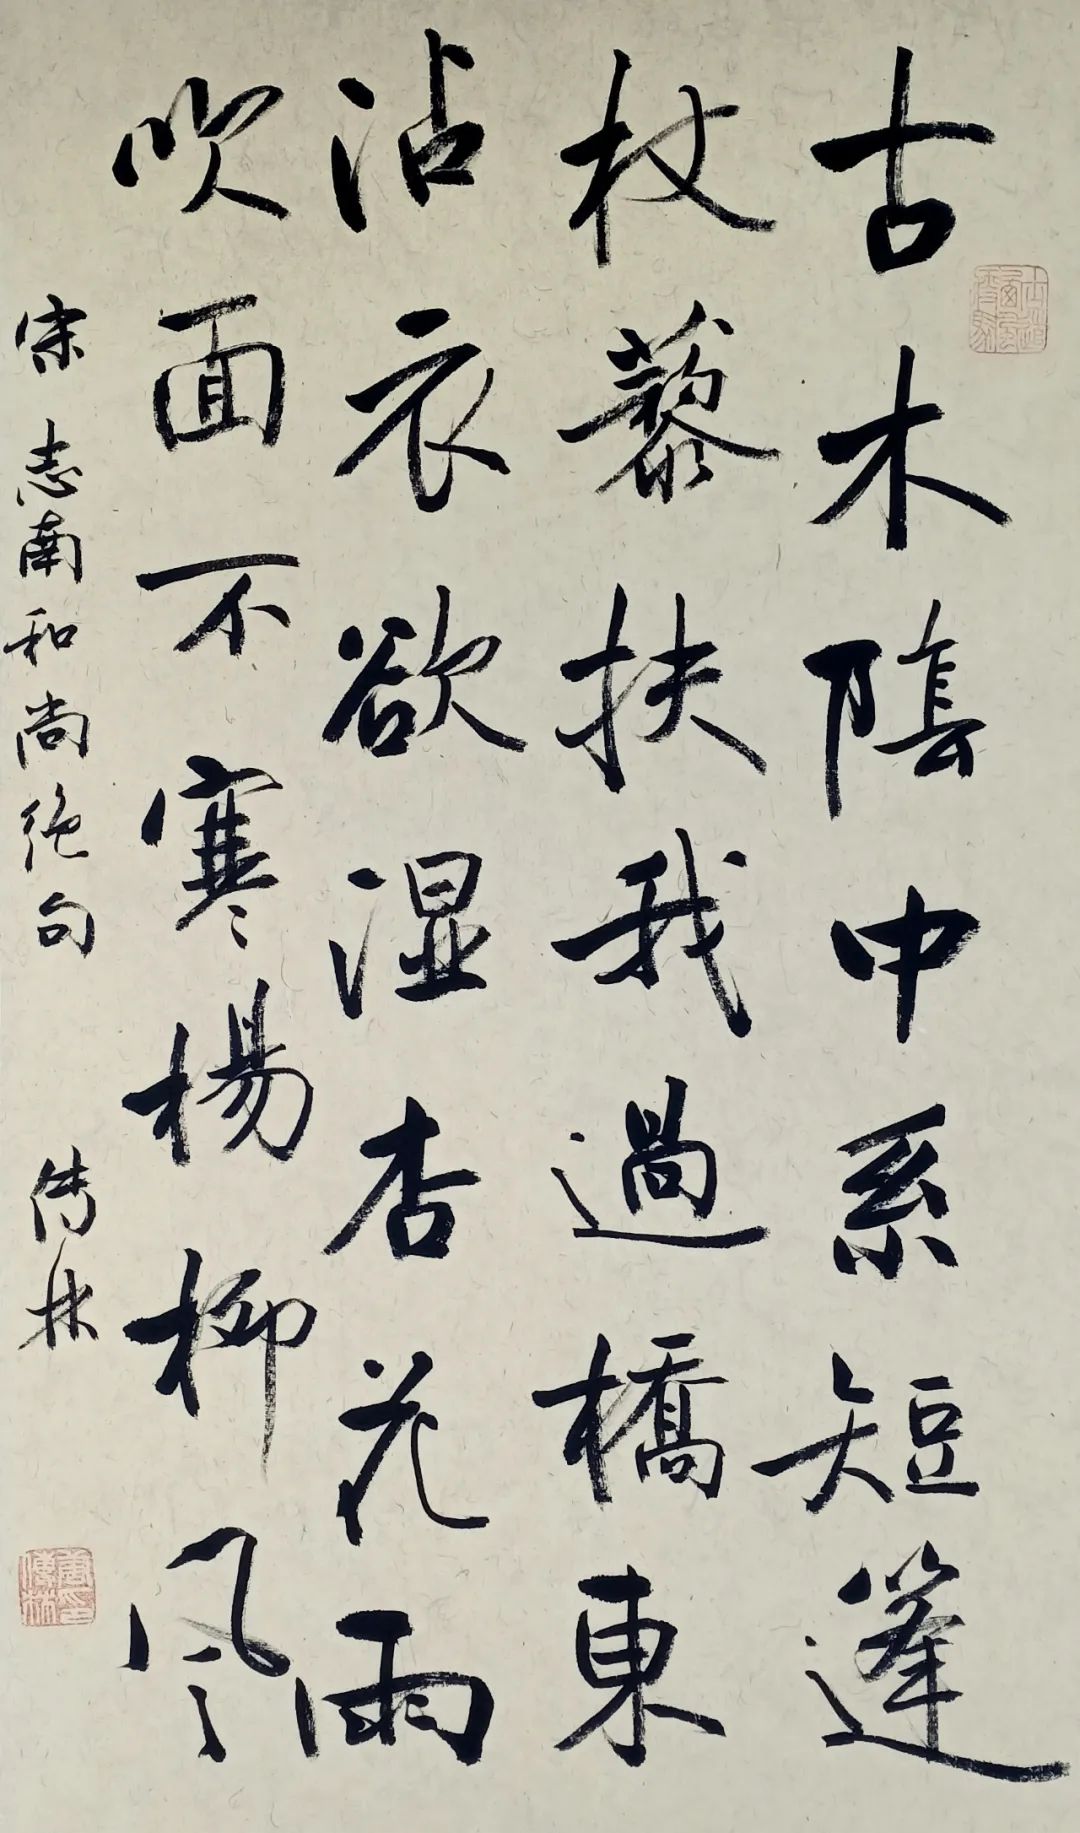 古木陰中系短篷
杖藜扶我過橋東
沾衣欲湿杏花雨
吹面不寒楊柳风
宋志南和尚绝句 传林